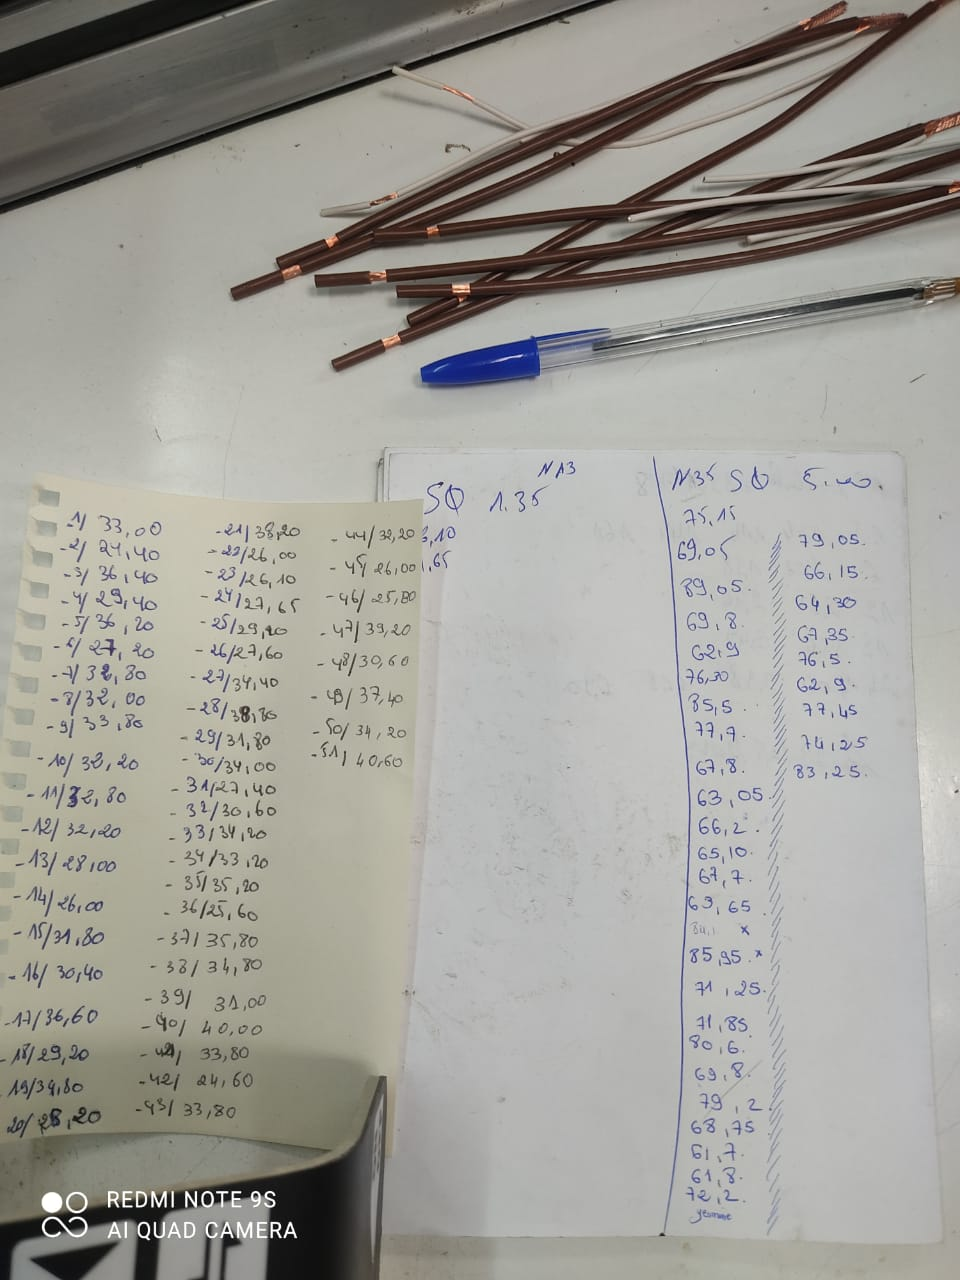 -1/ 33,00
-2/ 24,40
-3/ 36,40
-4/ 29,40
-5/ 36,20
-6/ 27,20
-7/ 32,80
-8/ 32,00
-9/ 33,80
-10/ 32,20
-11/ 32,80
-12/ 32,20
-13/ 28,00
-14/ 26,00
-15/ 31,80
-16/ 30,40
-17/ 36,60
-18/ 29,20
19/ 34,80
20/ 28,20
-21/ 38,20
-22/ 26,00
-23/ 26,10
-24/ 27,65
-25/ 29,20
-26/ 27,60
-27/ 34,40
-28/ 38,80
-29/ 31,80
-30/ 34,00
-31/ 27,40
-32/ 30,60
-33/ 34,20
-34/ 33,20
-35/ 35,20
-36/ 25,60
-37/ 35,80
-38/ 34,80
-39/ 31,00
-40/ 40,00
-41/ 33,80
-42/ 24,60
-43/ 33,80
-44/ 32,20
-45/ 26,00
-46/ 25,80
-47/ 39,20
-48/ 30,60
-49/ 37,40
-50/ 34,20
-51/ 40,60
NA3
SQ 1.35
3,10
1,65
N35 SQ
75,15
69,05
89,05.
69,8.
62,9
76,30
85,5.
77,7.
67,8.
63,05.
66,2.
65,10.
67,7.
69,65
x
85,95.x
71,25.
71,85
80,6.
69,8.
79,2
68,75
61,7.
61,8.
72,2.
79,05.
66,15.
64,30
67,35.
76,5.
62,9.
77,45
74,25
83,25.
REDMI NOTE 9S
AI QUAD CAMERA